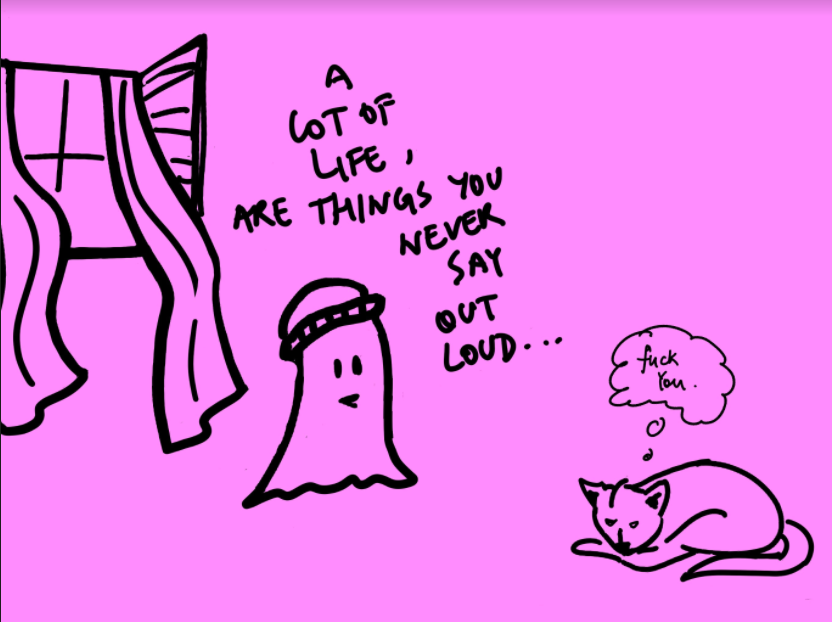 A
LOT OF
LIFE,
ARE THINGS YOU
NEVER
SAY
OUT
LOUD...
fuck
You.